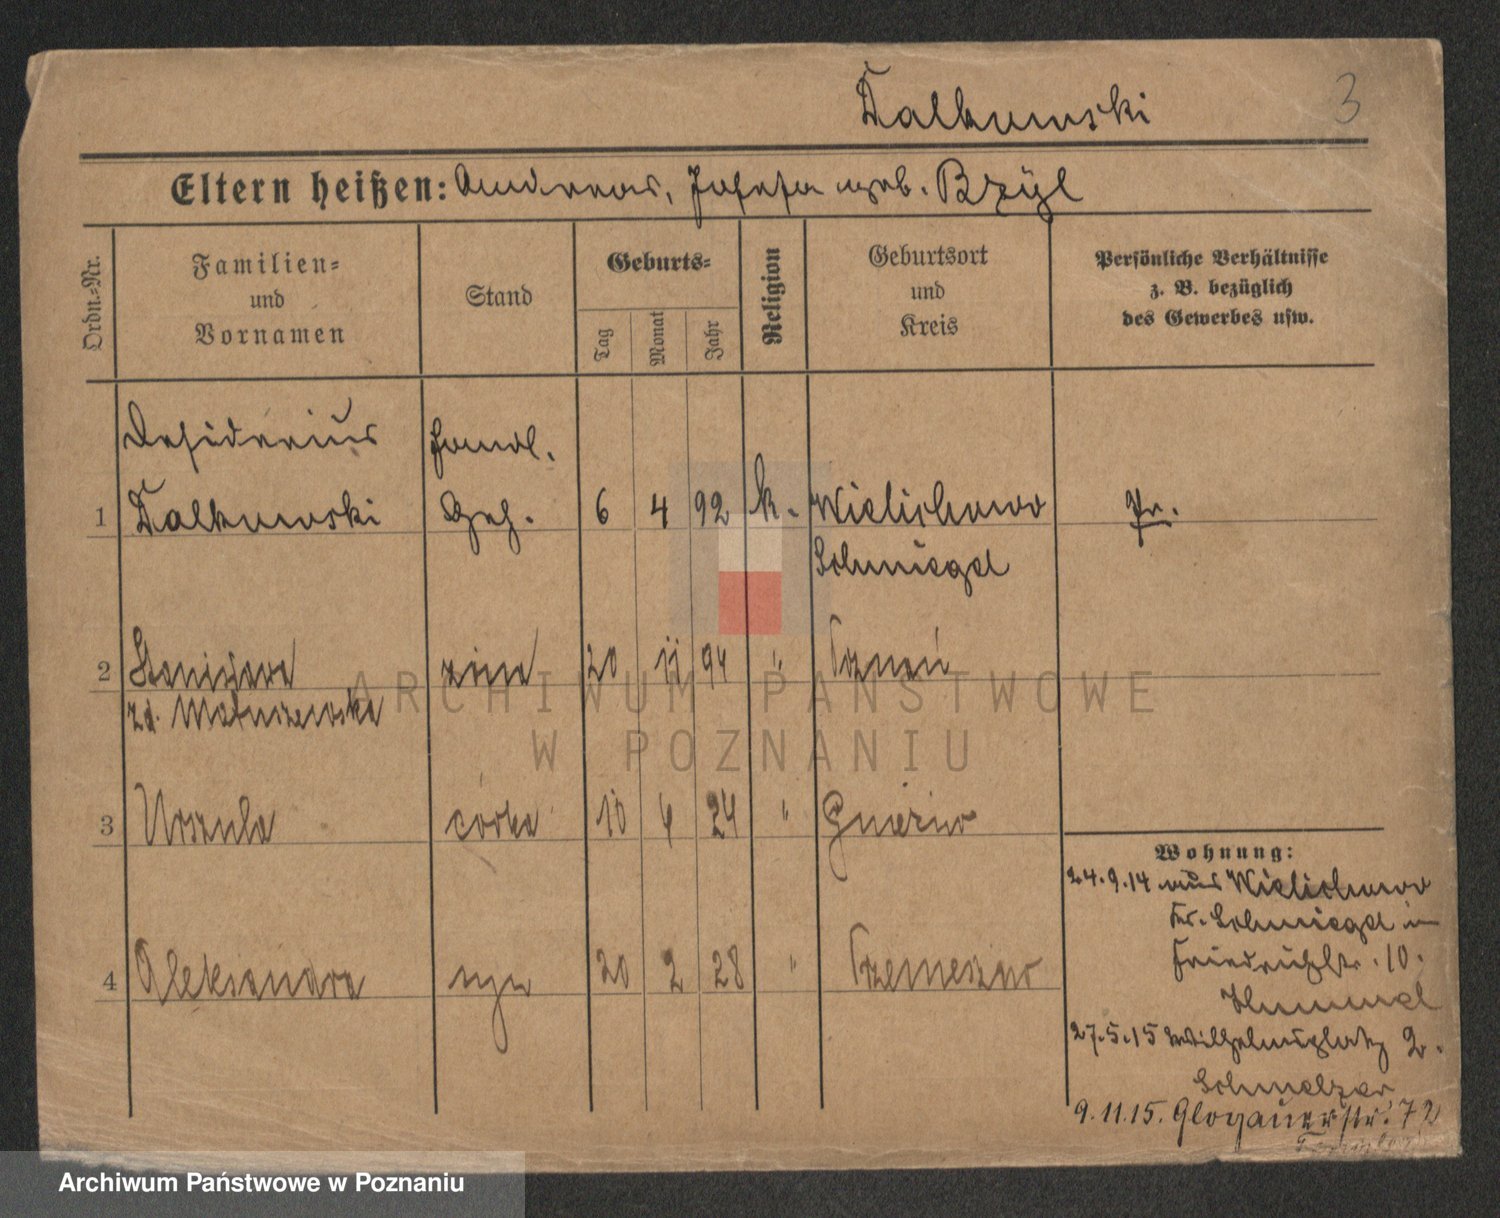 Dalkowski 3
Eltern heißen: Andreas, Josefa geb. Bzyl
Ordn.-Nr.
Familien- und Vornamen
Stand
Geburts-
Tag
Monat
Jahr
Religion
Geburtsort und Kreis
Persönliche Verhältnisse z. B. bezüglich des Gewerbes usw.
Desiderius Handl.
1 Dalkowski Geh. 6 4 92 k. Wielichowo Pr.
Schmiegel
2 Stanisława żona 20 11 94 "
zd. Matuszewska
3 Urszula córka 10 4 24 " Gniezno
4 Aleksandra 20 2 28 " Trzemeszno
Wohnung:
24.9.14 aus Wielichowo
Kr. Schmiegel in
Friedrichstr. 10.
Hummel
27.5.15 Wilhelmsplatz 2.
Schmelzer
9.11.15. Glogauerstr. 72
ARCHIWUM PAŃSTWOWE
W POZNANIU
Archiwum Państwowe w Poznaniu